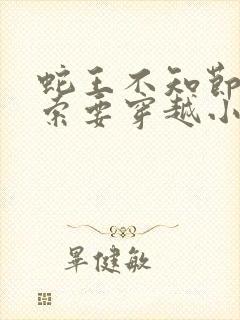 蛇王不知节
索要穿越小
畢健敏